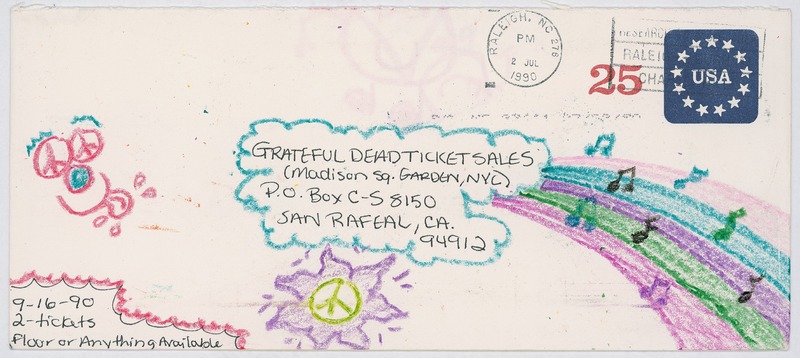 RALEIGH, NC 276
PM
2 JUL
1990
RALEI
CHA
25
USA
GRATEFUL DEAD TICKET SALES
(Madison Sq. GARDEN, NYC)
P.O. Box C-S 8150
SAN RAFEAL, CA.
94912
9-16-90
2-tickets
Floor or Anything Available